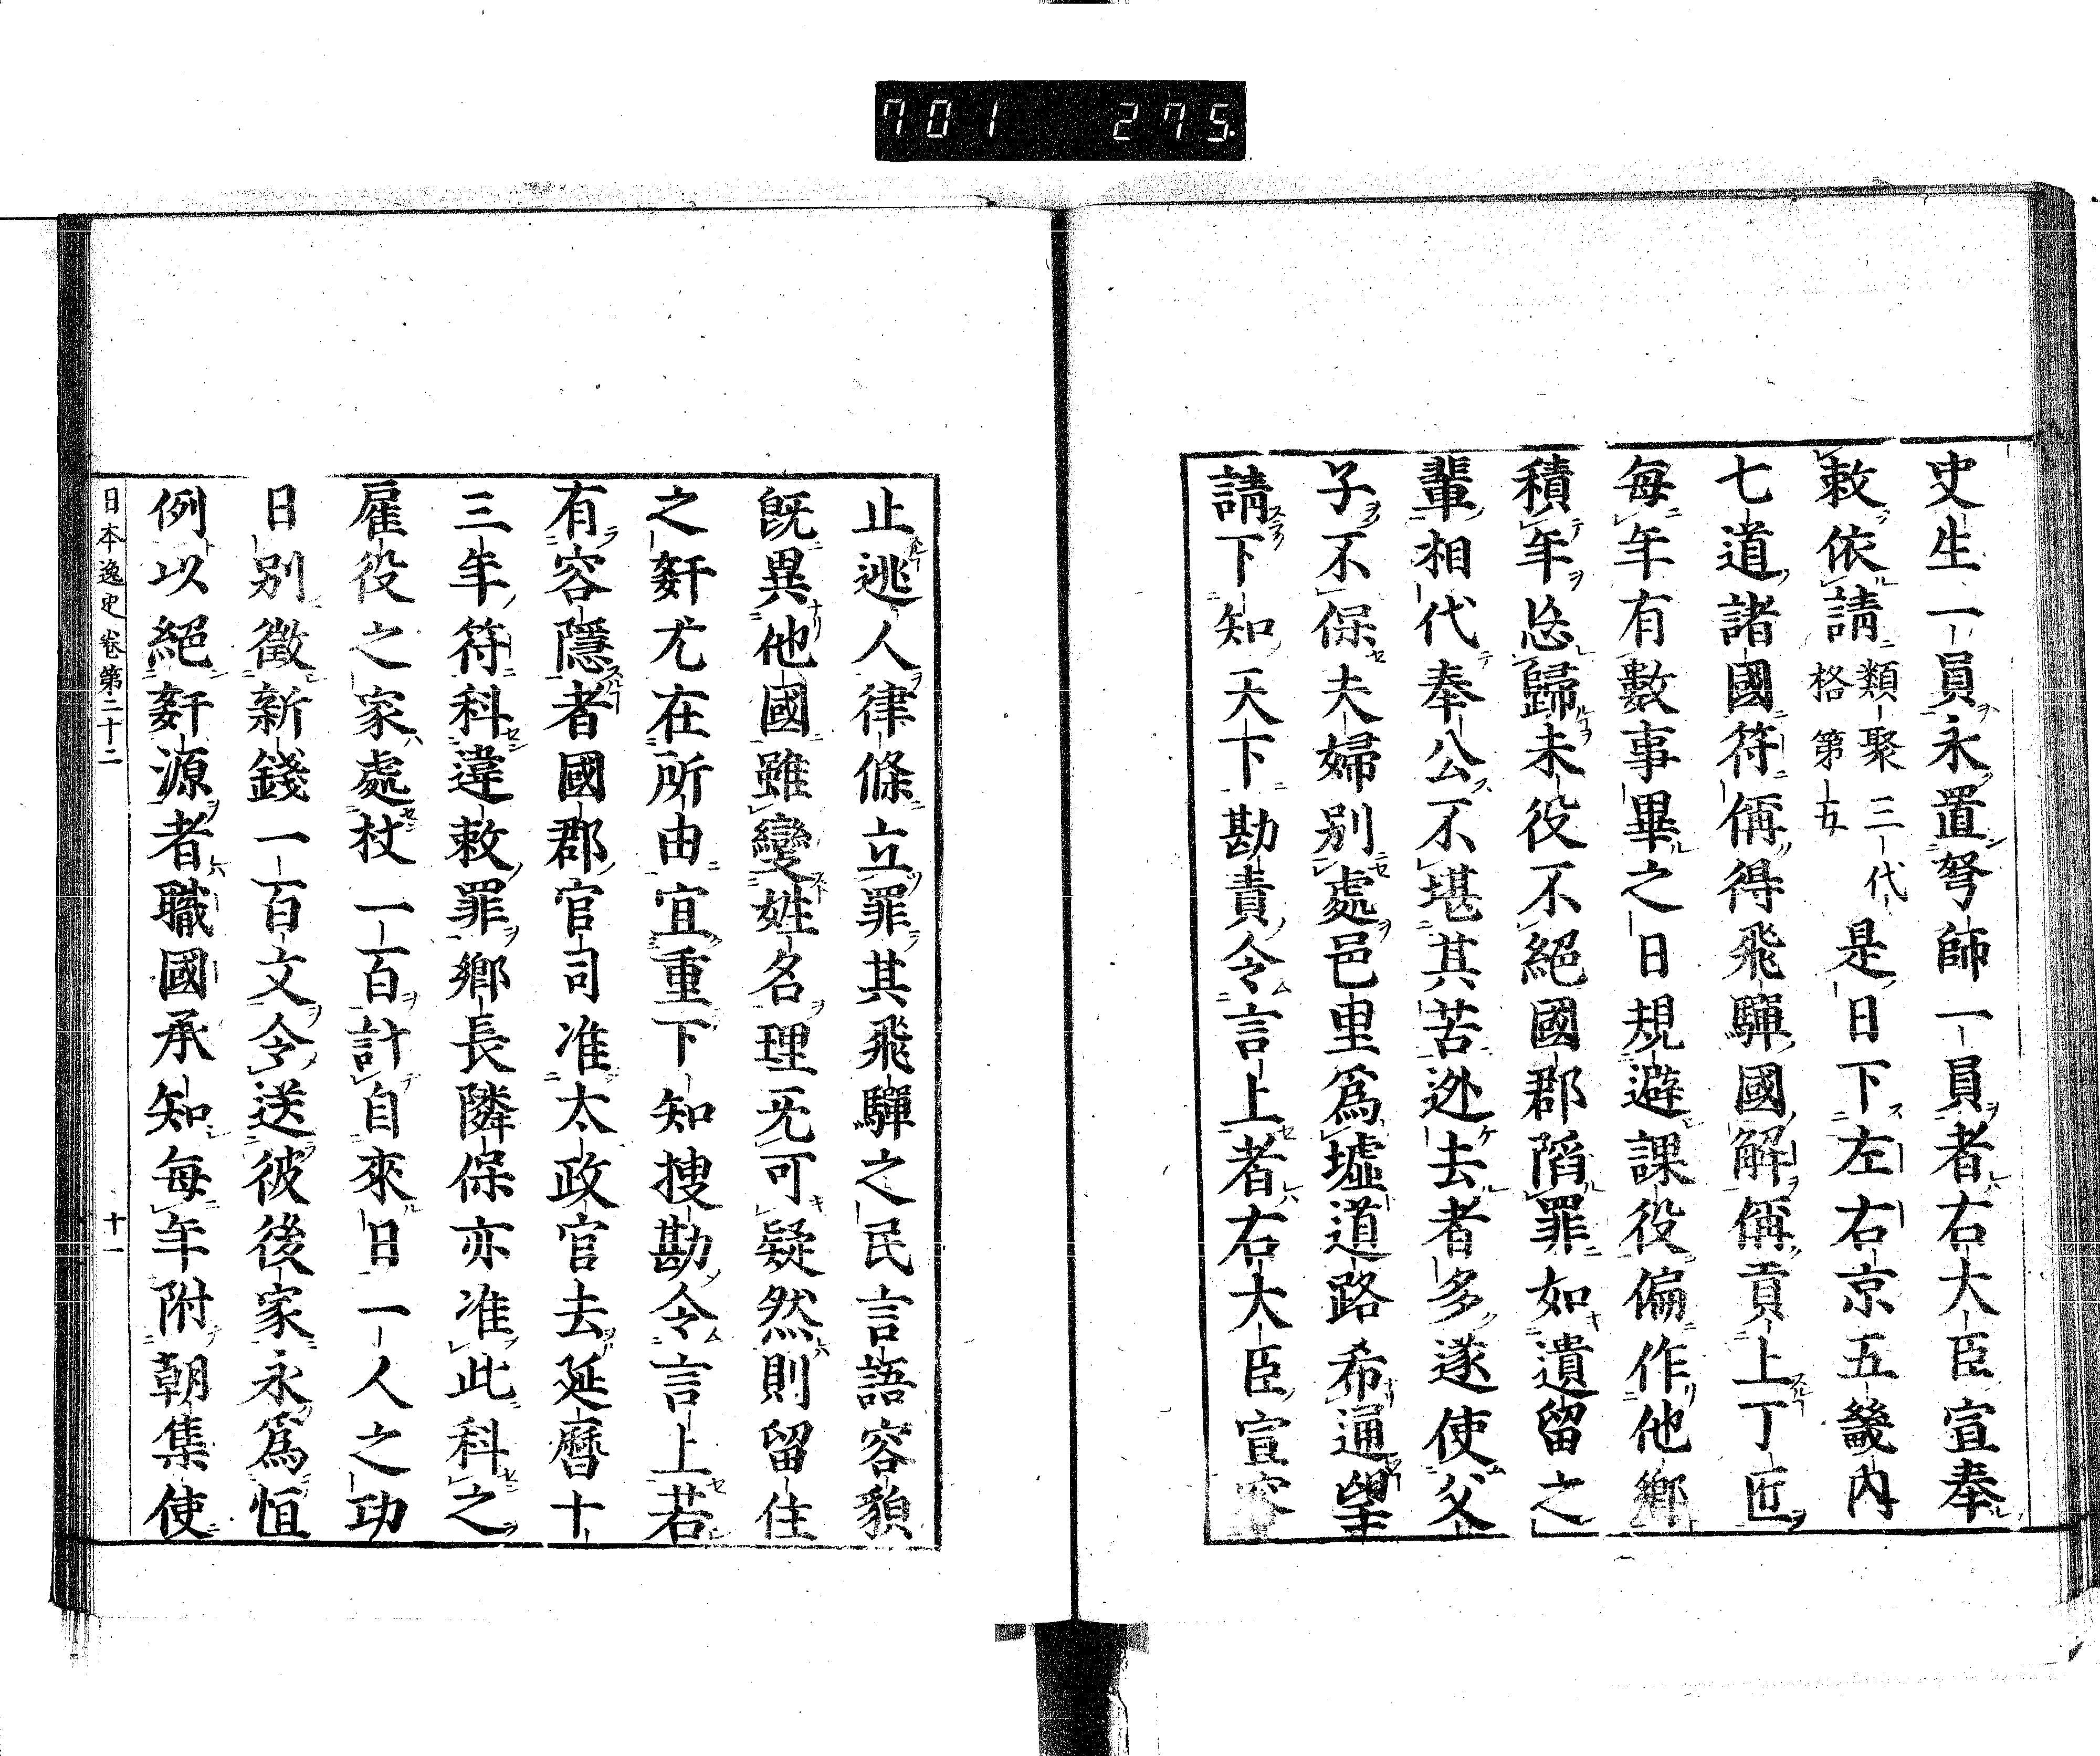 701 275
史生一員永置弩師一員者右大臣宣奉
敕依請類聚三代格第五是日下左右京五畿內
七道諸國符偁得飛驒國解偁貢上丁匠
每年有數事畢之日規避課役偏作他鄉
積年忘歸未役不絕國郡陷罪如遺留之
輩相代奉公不堪其苦迯去者多遂使父
子不保夫婦別處邑里爲墟道路希通望
請下知天下勘責令言上者右大臣宣容
止逃人律條立罪其飛驒之民言語容貌
既異他國雖變姓名理无可疑然則留住
之姧尤在所由宜重下知搜勘令言上若
有容隱者國郡官司准太政官去延曆十
三年符科違敕罪鄉長隣保亦准此科之
雇役之家處杖一百計自來日一人之功
日別徵新錢一百文令送彼後家永爲恒
例以絕姧源者職國承知每年附朝集使
日本逸史 卷第二十二 十一